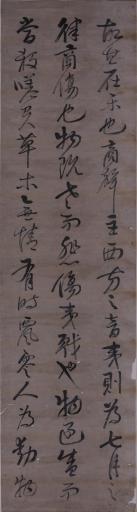 故其在樂也商聲主西方之音夷則為七月之
律商傷也物既老而悲傷夷戮也物過盛而
當殺嗟夫草木無情有時飄零人為動物